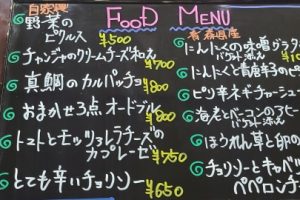 FOOD MENU
自家製
野菜の
ピクルス ¥500
チャンジャのクリームチーズ和え ¥700
真鯛のカルパッチョ ¥800
おまかせ3点オードブル ¥800
トマトとモッツァレラチーズの
カプレーゼ ¥750
とても辛いチョリソー ¥650
青森県産
にんにくの味噌
バケット添え
にんにくと青唐辛子の
ピリ辛ネギチャーシュー
海老とベーコンの
バケット添え
ほうれん草と卵の
チョリソーとキャベ
ペペロンチ